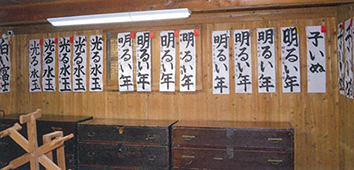 子いぬ
明るい年
明るい年
明るい年
明るい年
明るい年
明るい年
明るい年
明るい年
光る水玉
光る水玉
光る水玉
光る水玉
光る水玉
白い富士